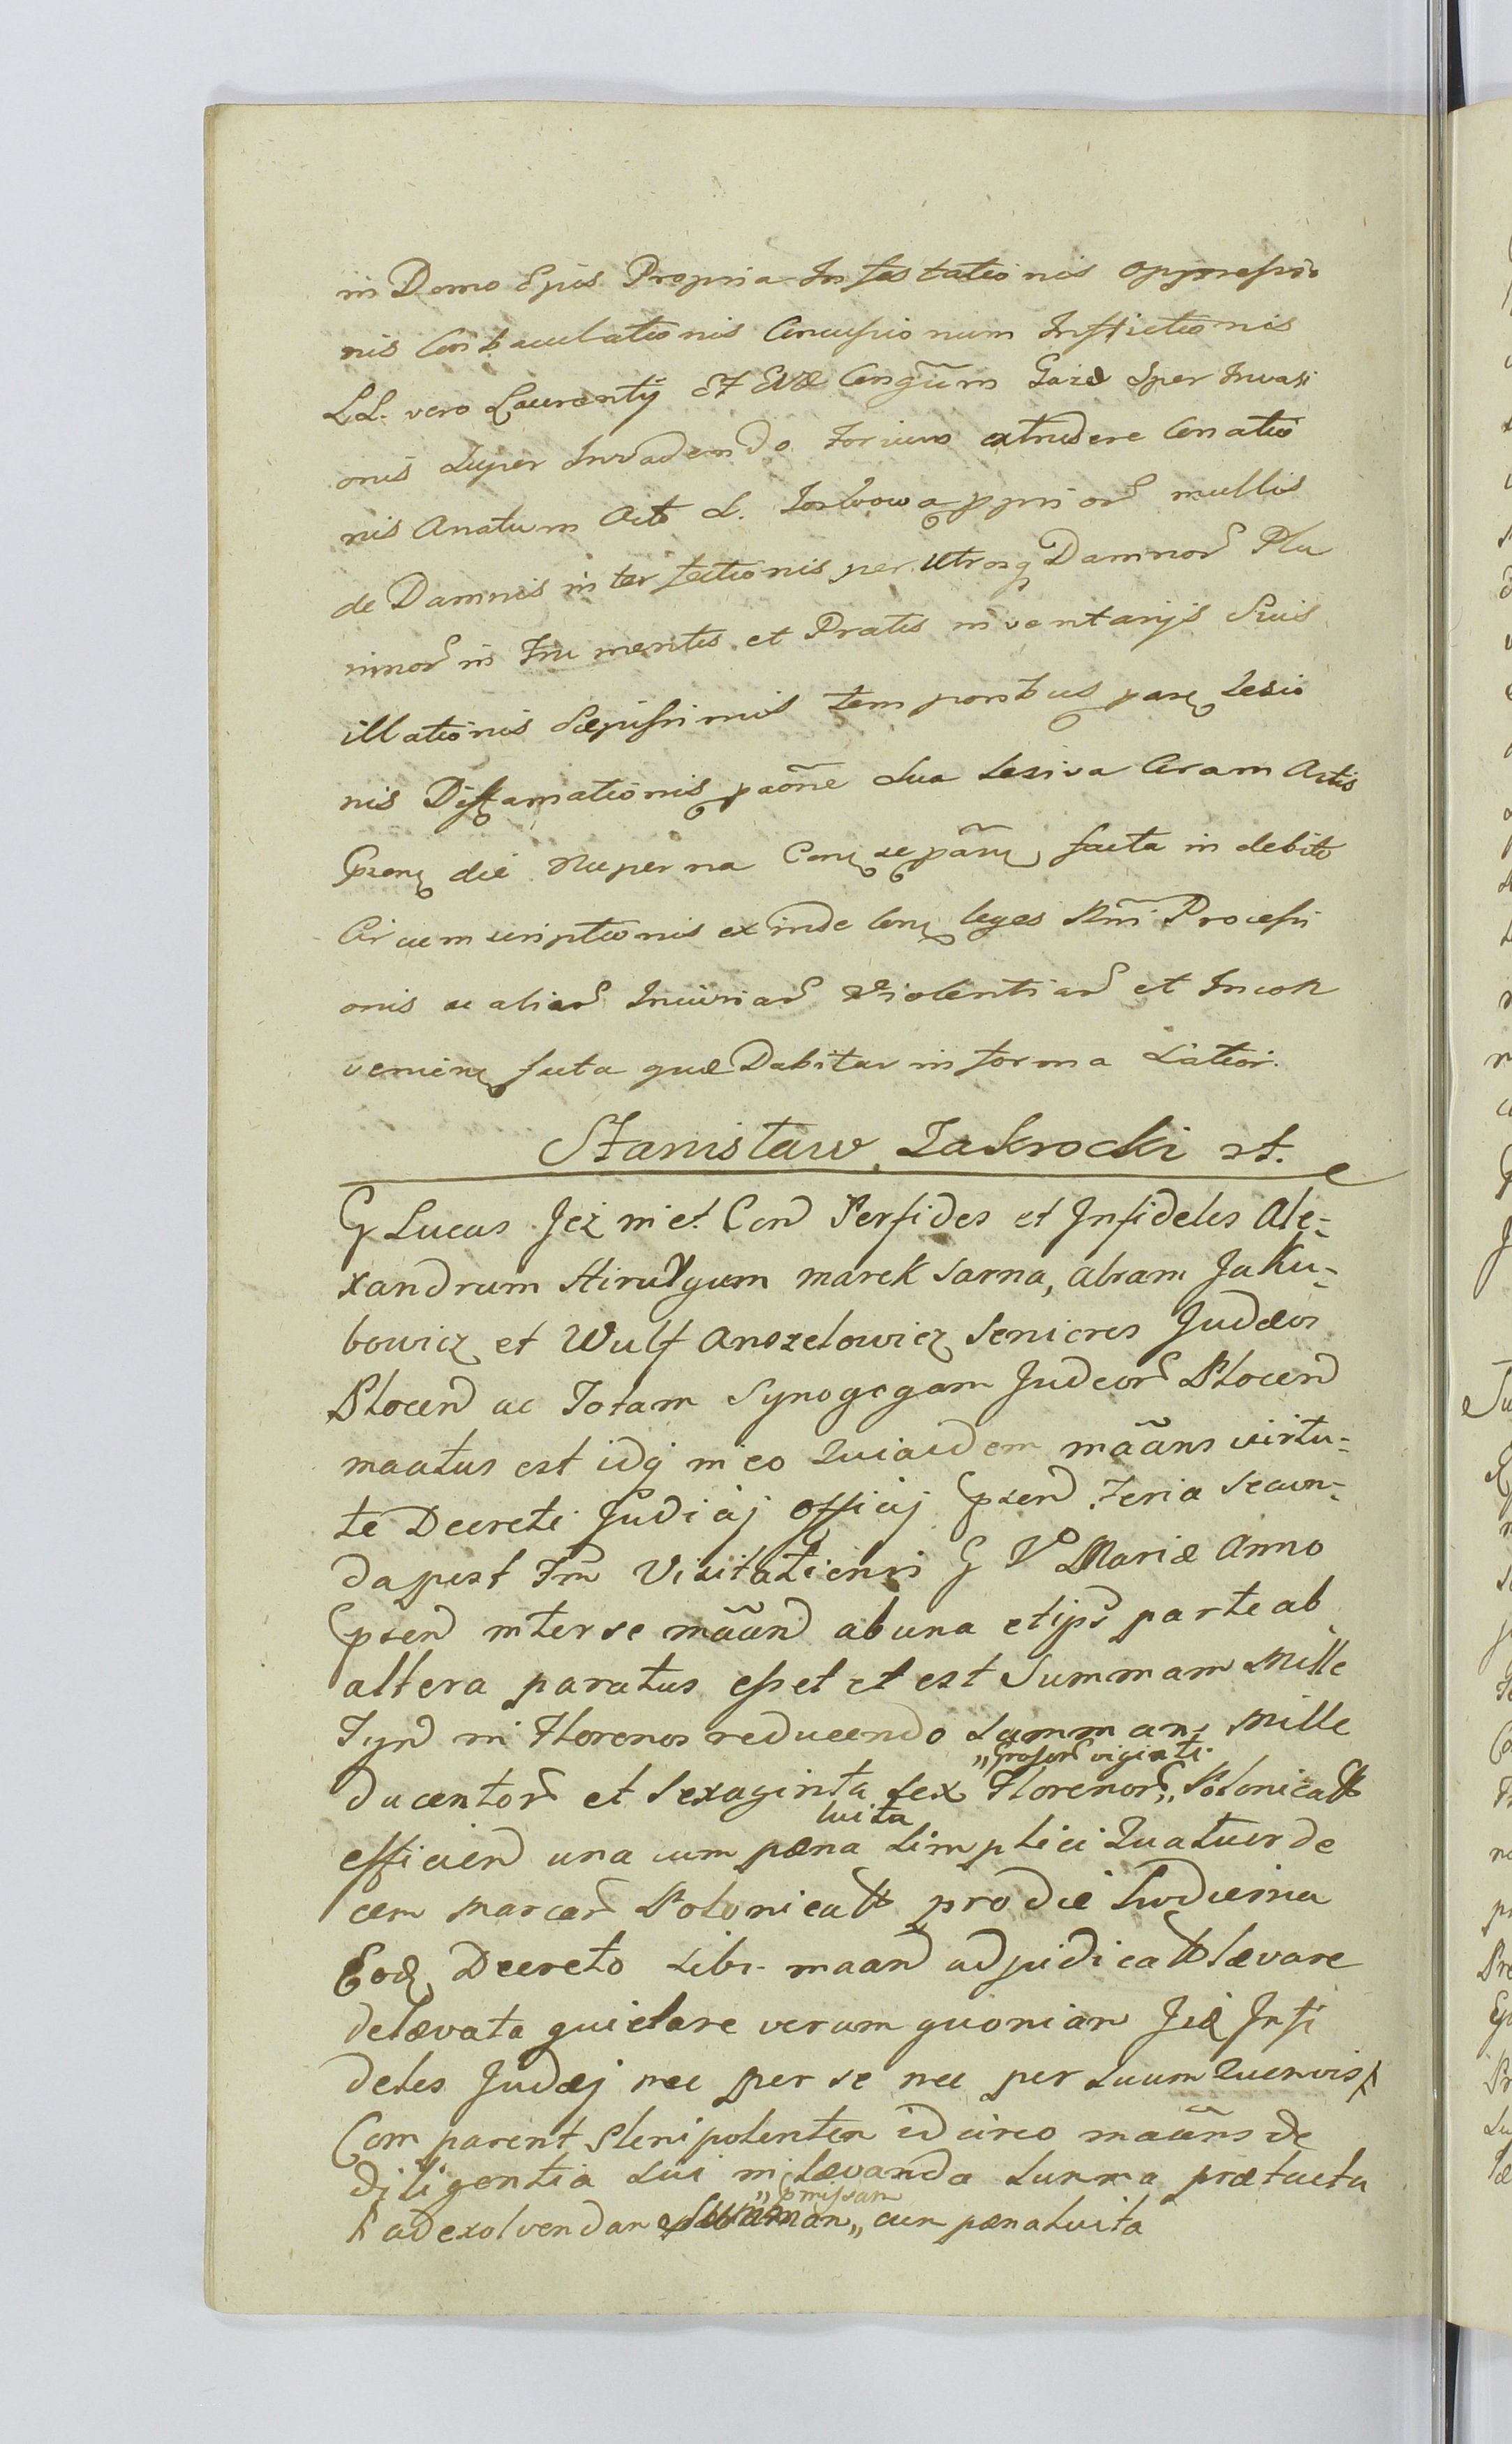 in Domo Ejus Propria Infestationis oppressio
nis Conbaculationis Concussionum Inflictionis
LL. vero Laurentij Et Evæ Congũm Gaize Sper Invasi
onis Super Invadendo forium extrudere Conatio
nis Anatum Octo L. pprior multis
de Damnis interfectionis per Utrosq Damnor Plu
rimor in Frumentis et Pratis inventarijs Suis
illationis Sæpissimis temporibus parq Lesio
nis Diffamationis paõne Sua Lesiva Coram Actis
Pszonq die Nuperna Conq se pãrq facta indebito
Circumscriptionis exinde Conq leges Rñi Processi
onis ac aliar Iniuriar Violentiar et Incon
venienq facta quæ Dabitur in forma Latior.
Stanisław Zakrocki st.
G Lucas Jeż niet Con Perfides et Infideles Ale-
xandrum Hirulgum marek sarna, abram Jaku-
bowicz et Wulf Anszelowicz Seniores Judæos
Plocen ac Totam Synogogam Judeor Plocen
maatus est idq in eo Quia idem mããns virtu-
te Decreti Judicij officij Pszen Feria Secun-
da post Fm Visitationis G V Mariæ Anno
Pszen inter se mããn ab una et ips parte ab
altera paratus esset et est Summam Mille
Tyn in Florenos reducendo Summam Mille
"Grossor viginti
ducentor et Sexaginta Sex Florenor" Polonicalt
luita
efficien una cum pæna Simplici Quatuorde
cem Marcar Polonicalt pro die hodierna
Eod Decreto Sibi maan adjudicalt lævare
delævata quietare verum quoniam Jid Infi
deles Judæj nec per se nec per suum Quemvis
Comparent Plenipotenten idcirco maãns de
diligentia Sui in lævanda Summa prætacta
"pmissam
h ad exolvendan Summan" cum pæna luita